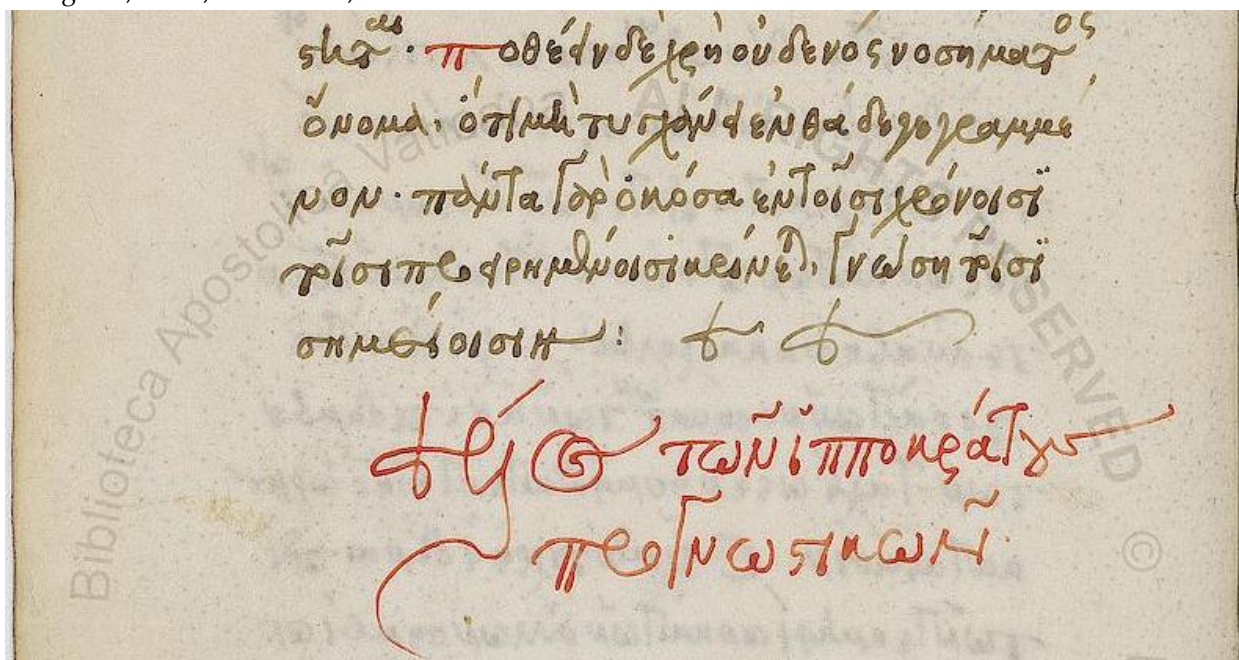 ποθέειν δε χρὴ οὐδενὸς νοσήματος
ὄνομα. ὅτι μὴ τυγχάνει ἐνθάδε γεγραμμέ
νον· πάντα γὰρ ὁκόσα ἐν τοῖσι χρόνοισϊ
τοῖσι προειρημένοισι κρίνεται, γνώση τοῖσϊ
σημείοισιν:
τῶν ἱπποκράτους
προγνωστικῶν
Biblioteca Apostolica Vaticana ALL RIGHTS RESERVED ©